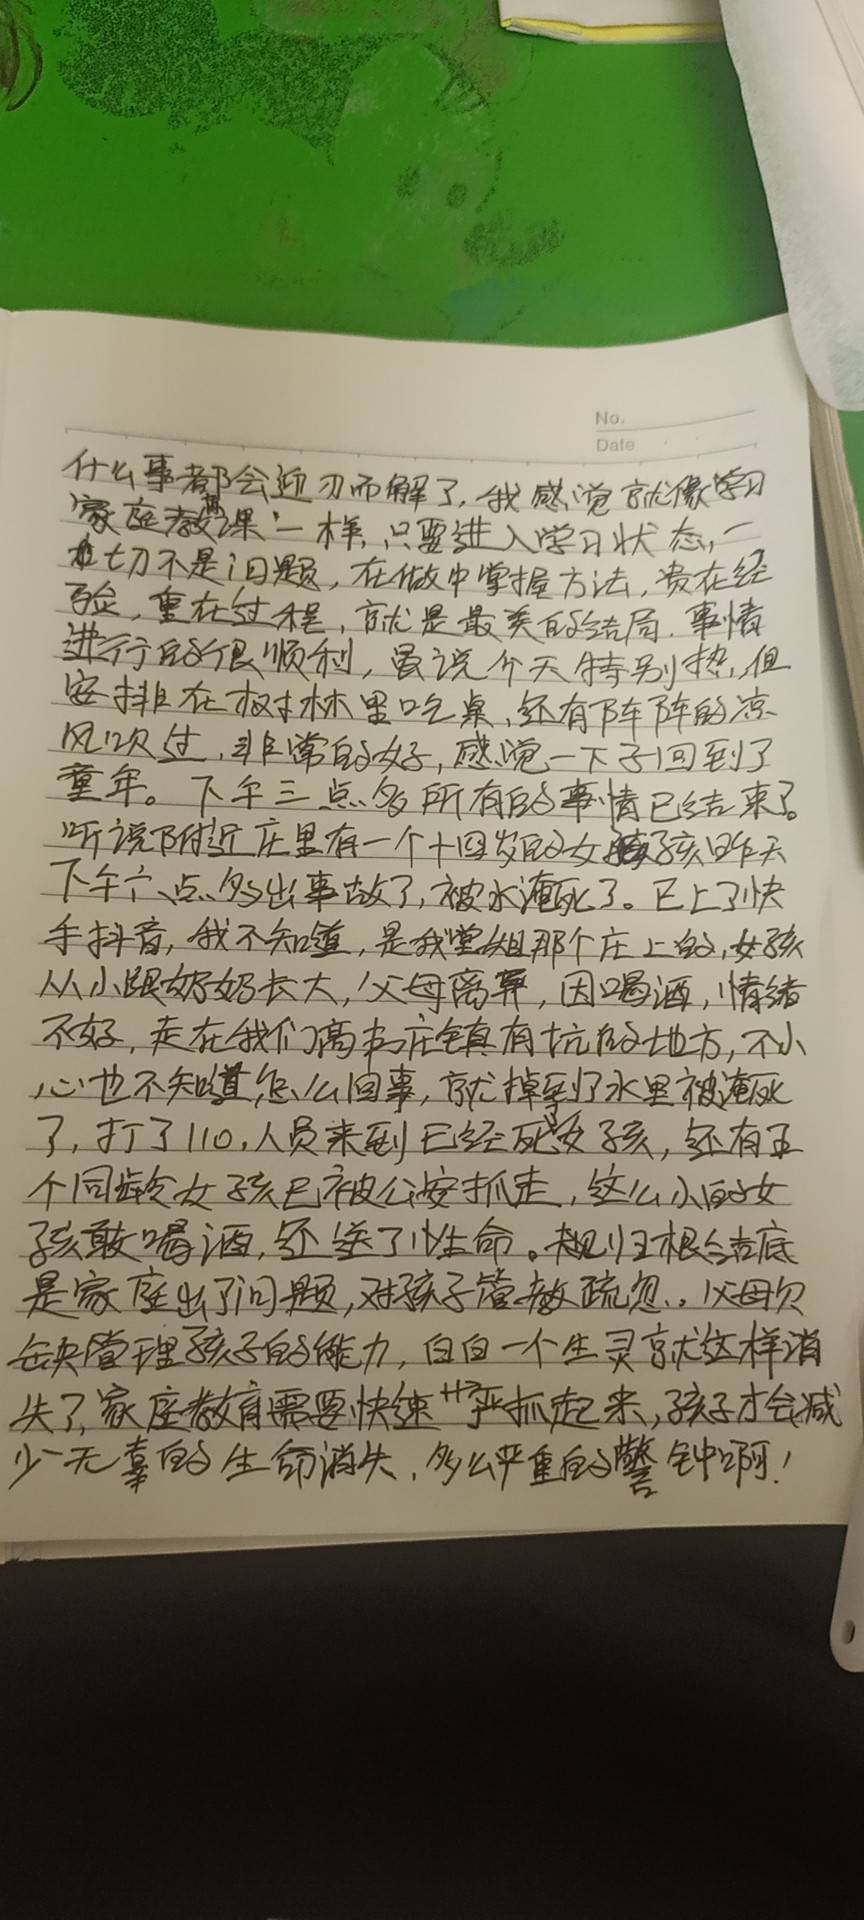 No.
Date
什么事都会迎刃而解了,我感觉就像学习
"家庭教育课"一样,只要进入学习状态,一
切不是问题,在做中掌握方法,贵在经
验,重在过程,就是最美的结局.事情
进行的很顺利,虽说今天特别热,但
安排在树林里吃桌,还有阵阵的凉
风吹过,非常的好,感觉一下子回到了
童年。下午三点多所有的事情已结束了。
听说附近庄里有一个十四岁的女孩昨天
下午六点多出事故了,被水淹死了。已上了快
手抖音,我不知道,是我堂姐那个庄上的,女孩
从小跟奶奶长大,父母离异,因喝酒,情绪
不好,走在我们高书庄镇有坑的地方,不小
心也不知道怎么回事,就掉到了水里被淹死
了,打了110,人员来到已经死女孩,还有五
个同龄女孩已被公安抓走,这么小的女
孩敢喝酒,还送了性命。归根结底
是家庭出了问题,对孩子管教疏忽..父母欠
缺管理孩子的能力,白白一个生灵就这样消
失了,家庭教育需要快速严抓起来,孩子才会减
少无辜的生命消失.多么严重的警钟啊!